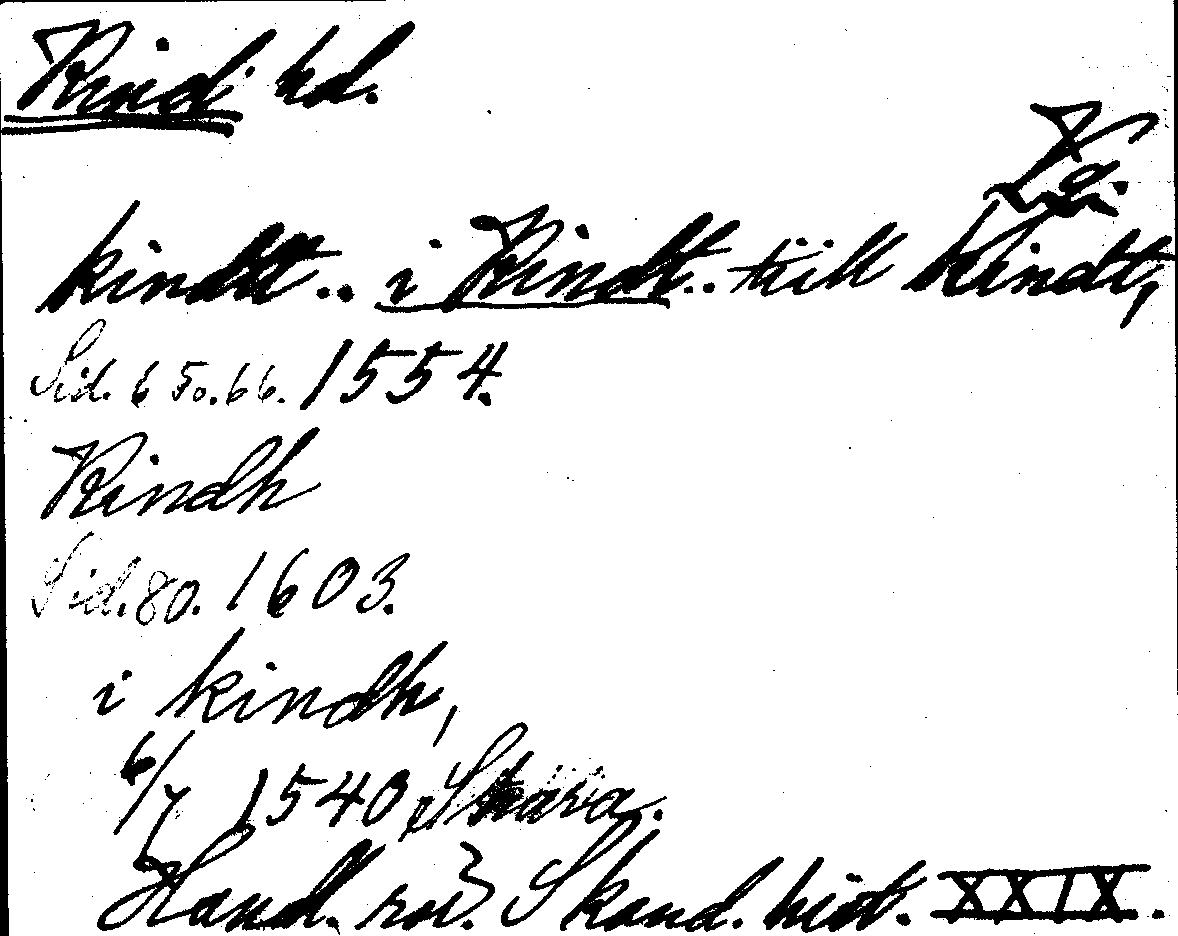 Kind hd.
Vg.
kindt.. i Kindt.. till kindt,
Sid. 65o.66. 1554.
Kindh
Sid. 80. 1603.
i kindh,
6/7 1540 Skara.
Handl. rör. Skand. hist. XXIX.